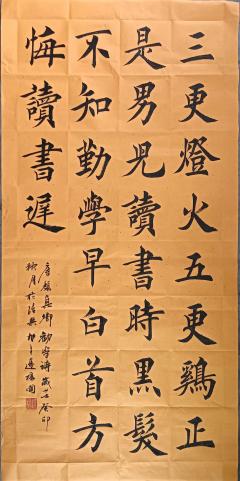 三更燈火五更鷄正
是男児讀書時黒髮
不知勤學早白首方
悔讀書遲
唐顔真卿勸學詩歲在癸卯
秋月於